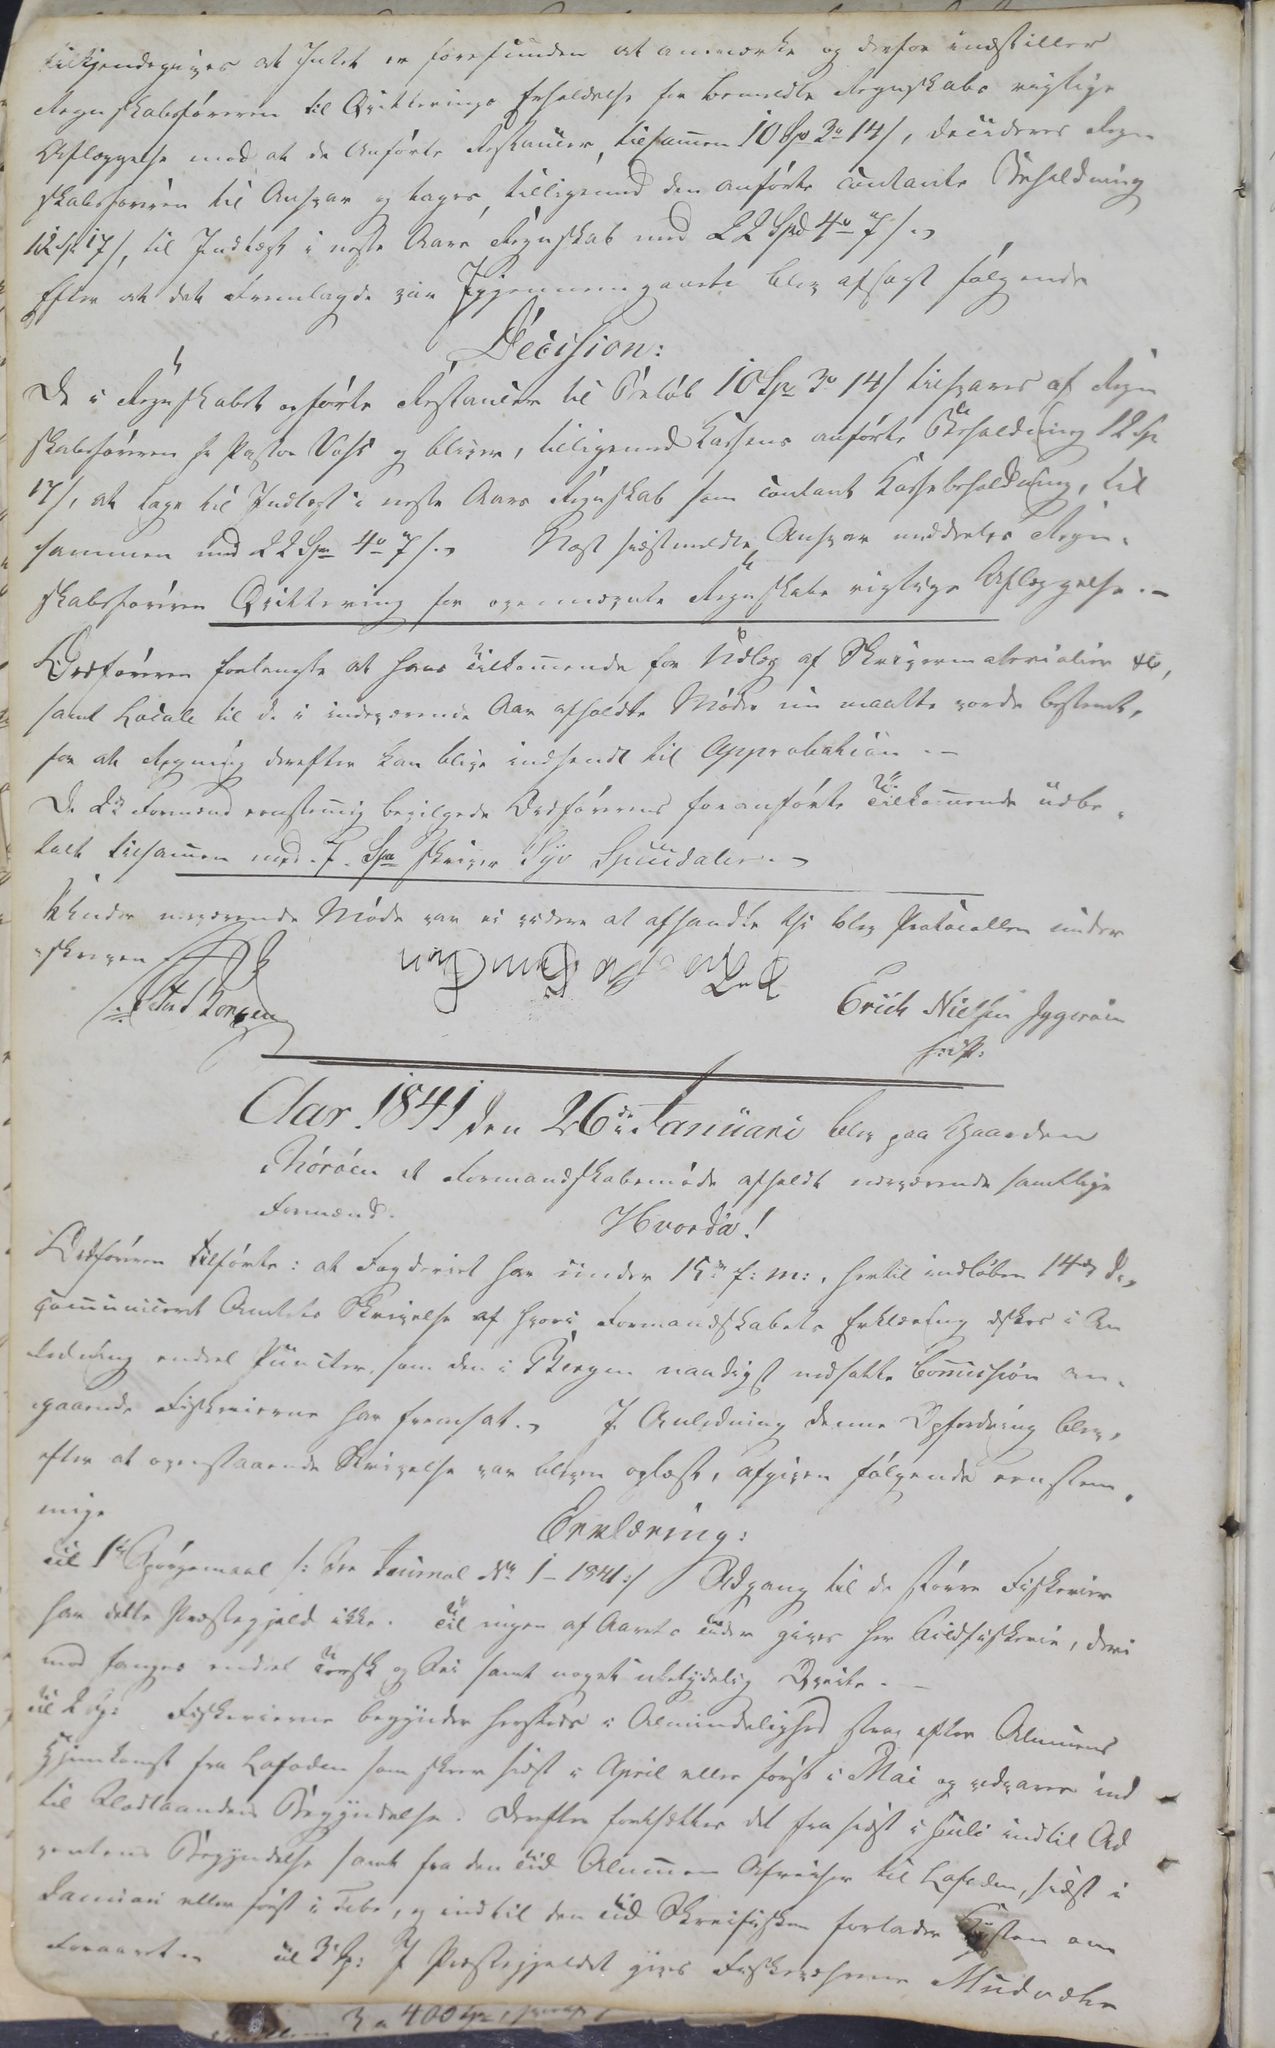 tilkjendegives at Intet er forefunden at anmærke og derfor indstiller
Regnskabsføreren til Qvitterings Erholdelse for bemeldte Regnskabs rigtige
Aflæggelse mod at de anførte Restancer, tilsammen 10 Spd 3 o 14 s, decideres Regn
skabsføreren til Ansvar og tages, tilligemed den anførte contante Beholdning
12 Sp 17 s, til Indtægt i neste Aars Regnskab med 22 Spd 4 o 7 s.
Efter at det Fremlagde var Igjennemgaaet blev afsagt følgende
Decision:
De i Regnskabet opførte Restancer til Beløb 10 Spd 3 o 14 s tilsvares af Regn
skabsføreren Hr Pastor Voss og bliver, tilligemed Kassens anførte Beholdning 12 Sp
17 s, at tage til Indtægt i neste Aars Regnskab som contant Kassebeholdning, til
sammen med 22 Spd 4 o 7 s. Mod sidstmeldte Ansvar meddeles Regn-
skabsføreren Qvittering for ovennævnte Regnskabs rigtige Aflæggelse.
Ordføreren forlangte at hans Tilkommende for Udlæg af Skrivermaterialier &c,
samt Locale til de i indeværende Aar afholdte Møder nu maatte vorde bestemt,
for at Regning derefter kan blive indsendt til Approbation.
De 2de Formænd eenstemmig bevilgede Ordførerens foranførte Tilkommende udbe-
talt tilsammen med 7 Spd skriver Syv Speciedaler.
Under nærværende Møde var ei videre at afhandle thi blev Protocollen under
skreven
Erich Nielsen
Aar 1841 den 26de Januari blev paa Gaarden
et Formandskabsmøde afholdt nærværende samtlige
Formænd. Hvorda!
Ordføreren tilførte: at Fogderiet har under 15de f: m:, hertil indløben 14 ds
communiceret Amtets Skrivelse af hvori Formandskabets Erklæring æskes i An
ledning endeel Puncter, som den i Bergen naadigst nedsatte Commission an-
gaaende Fiskerierne har fremsat. I Anledning denne Opfordring blev,
efter at ovenstaaende Skrivelse var bleven oplæst, afgiven følgende eenstem-
mige
Erklæring:
Til 1ste Spørgsmaal /: See Journal No 1 - 1841 :/ Adgang til de større Fiskerier
har dette Præstegjeld ikke. Til ingen af Aarets Tider gives her Sildfiskerie, deri
mod fanges endeel Torsk og Sei samt noget ubetydelig Qveite.
Til 2 Sp: Fiskerierne begynder hersteds i Almindelighed strax efter Almuens
Hjemkomst fra Lofoden som skeer sidst i April eller først i Mai og vedvarer ind
til Slaataandens Begyndelse. Derefter fortsættes det fra sidst i Juli indtil Ad
ventens Begyndelse samt fra den Tid Almuen Afreiser til Lofoden, sidst i
Januari eller først i Febr, og indtil den Tid Skreifisken forlader Kysten om
Foraaret. Til 3 Sp: I Præstegjeldet gives Fiskeværene
3 a 400